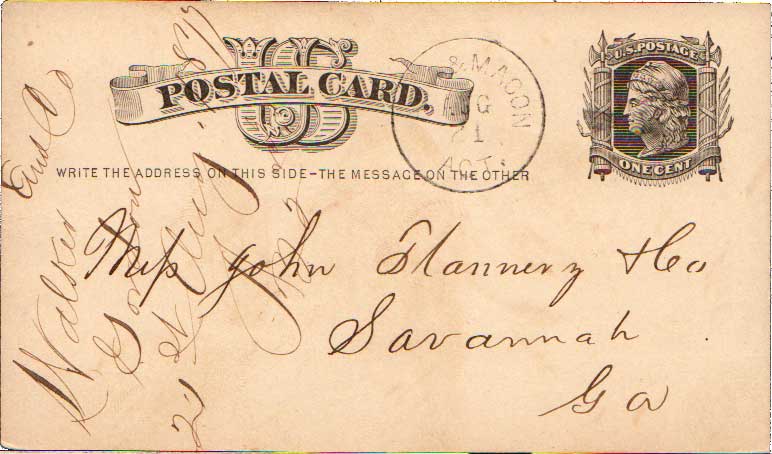 US
POSTAL CARD.
U.S. POSTAGE
ONE CENT
& MACON
G
21
AGT.
WRITE THE ADDRESS ON THIS SIDE-THE MESSAGE ON THE OTHER
Mess John Flannery & Co
Savannah
Ga
Walker and Co
Gordon
21 Aug